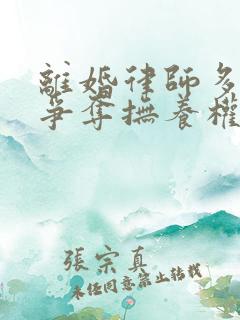 離婚律師多
爭奪撫養權
張宗真
未經同意禁止轉載